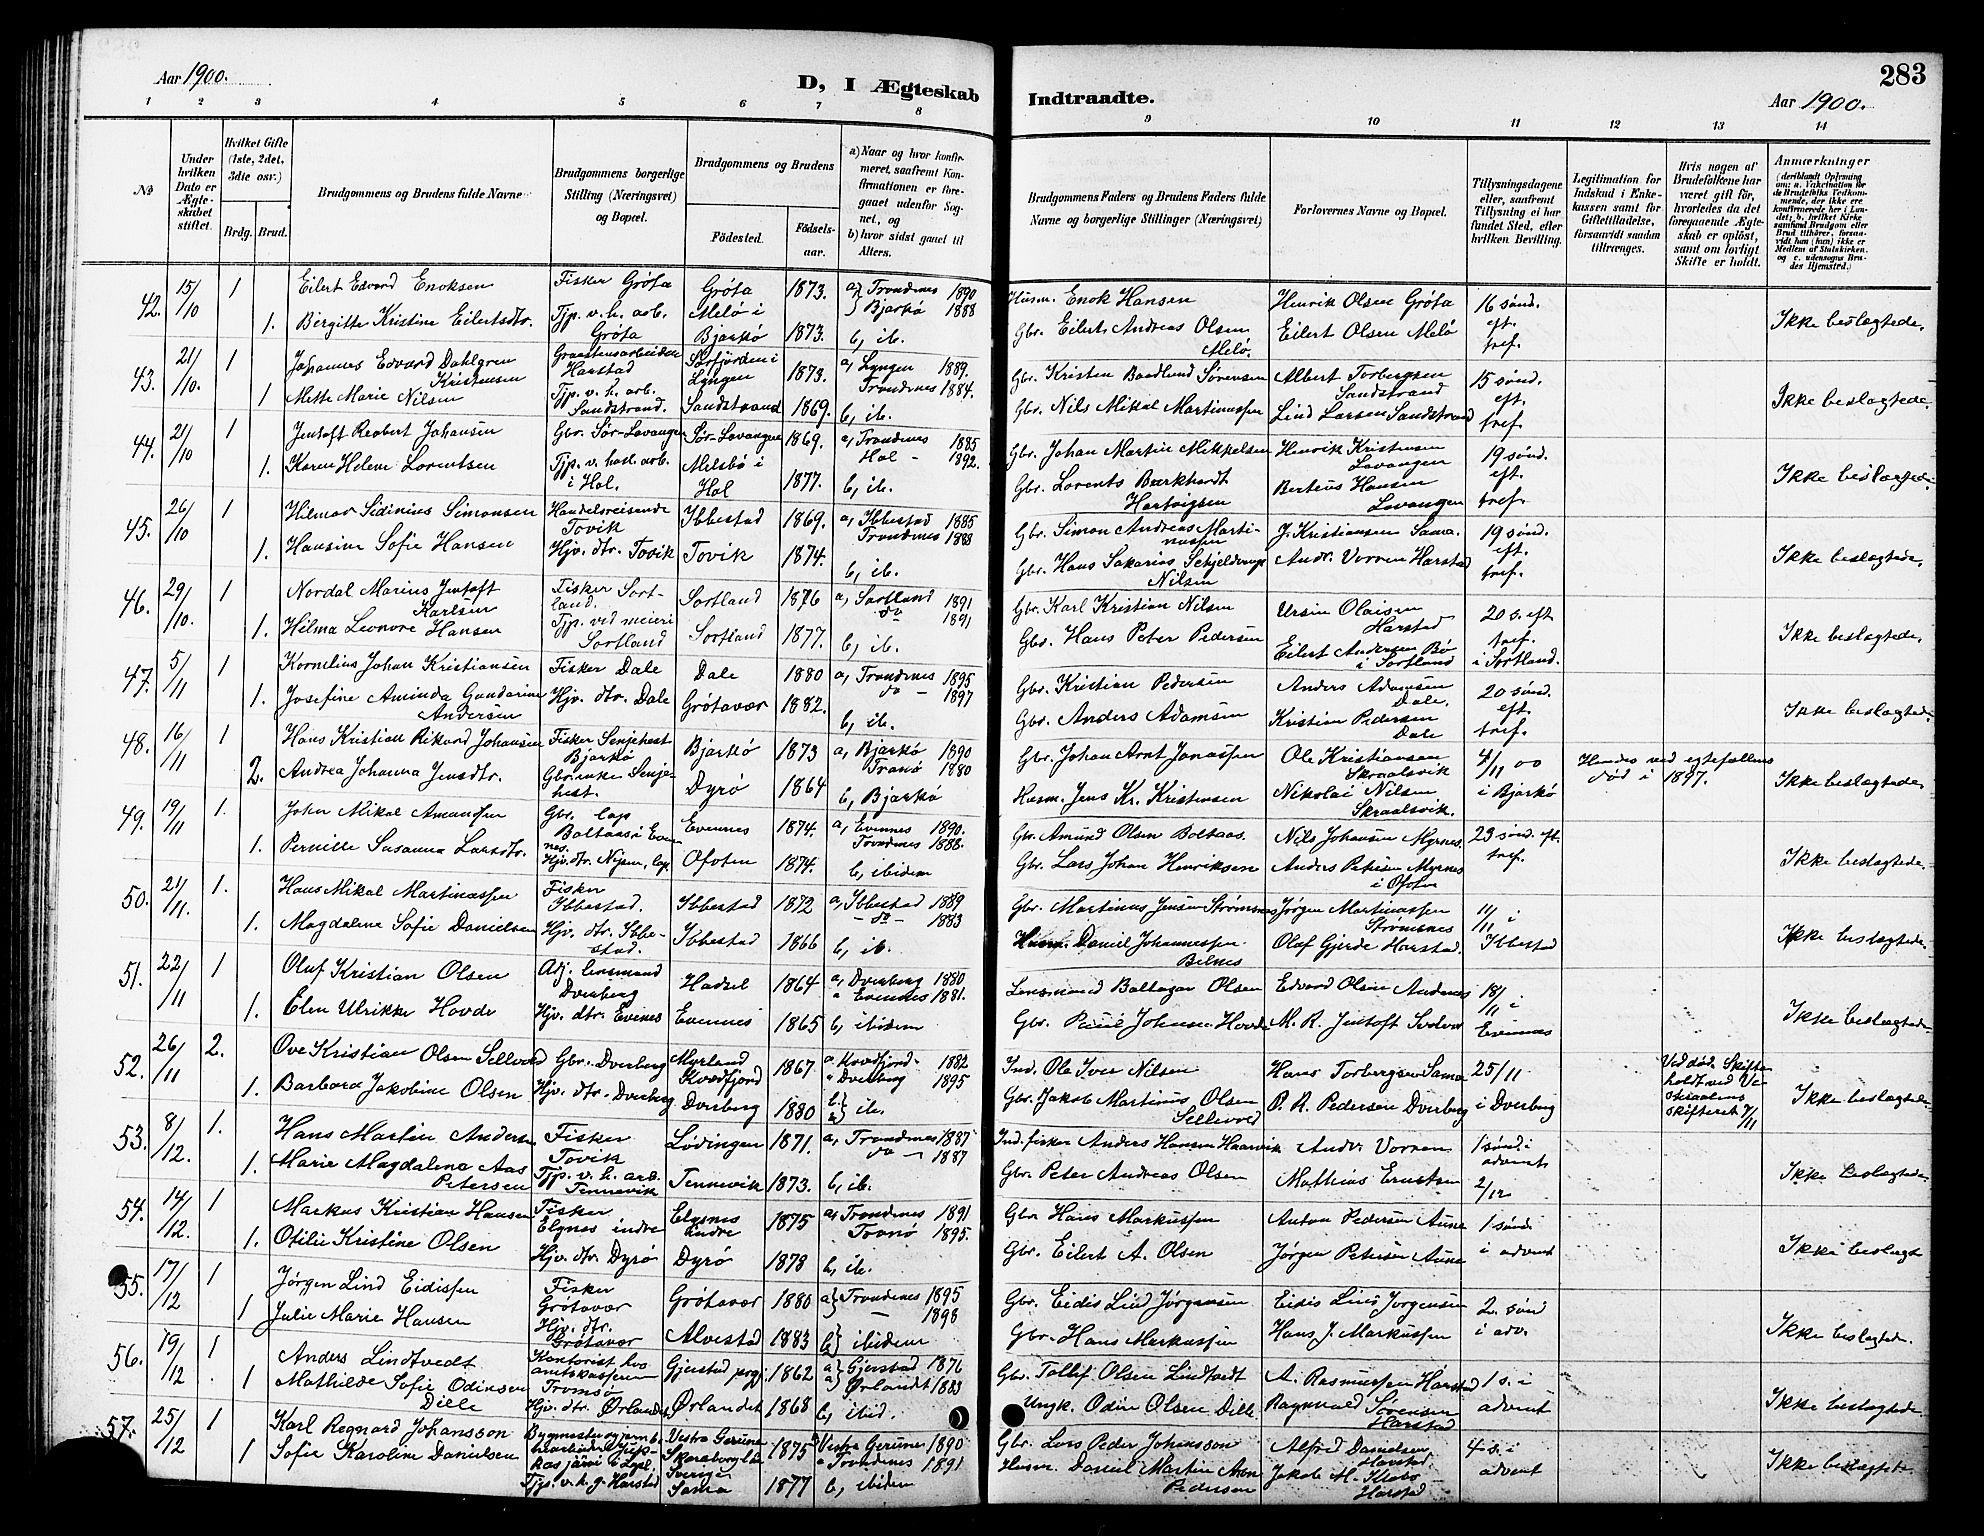 283
Aar 1900.
D, I Ægteskab
Indtraadte.
Aar 1900.
1 2 3 4 5 6 7 8 9 10 11 12 13 14
No
Under hvilken Dato er Ægteskabet stiftet.
Hvilket Gifte (1ste, 2det, 3die osv.)
Brdg. Brud.
Brudgommens og Brudens fulde Navne
Brudgommens borgerlige Stilling (Næringsvei) og Bopæl.
Brudgommens og Brudens
Fødested.
Fødselsaar.
a) Naar og hvor konfirmeret, saafremt Konfirmationen er foregaaet udenfor Sognet, og
b) hvor sidst gaaet til Alters.
Brudgommens Faders og Brudens Faders fulde Navne og borgerlige Stillinger (Næringsvei)
Forlovernes Navne og Bopæl.
Tillysningsdagene eller, saafremt Tillysning ei har fundet Sted, efter hvilken Bevilling.
Legitimation for Indskud i Enkekassen samt for Giftetilladelse, forsaavidt saadan tiltrænges.
Hvis nogen af Brudefolkene har været gift før, hvorledes da det foregaaende Ægteskab er opløst, samt om lovligt Skifte er holdt.
Anmærkninger
42. 15/10 1 Eilert Edvard Enoksen Fisker Gröta Gröta 1873. a) Trondenes 1890 Husm. Enok Hansen Henrik Olsen Gröta 16 sönd. eft. tref. Ikke beslægtede.
1. Bergitte Kristine Eilertsdtr. Tjp. v. h. arb. Gröta Melö i Bjarkö 1873. Bjarkö 1888 b, ib. Gbr. Eilert Andreas Olsen Melö. Eilert Olsen Melö
43. 21/10. 1 Johannes Edvard Dahlgren Kristensen Graastensarbeider Harstad Sörfjorden i Lyngen 1873. a, Lyngen 1889. Gbr. Kristen Baadlund Sørensen Albert Torbergsen Sandstrand 15 sönd. eft. tref. Ikke beslægtede.
1 Mette Marie Nilsen Tjp. v. h. arb. Sandstrand. Sandstrand 1869. Trondenes 1884. b, ib. Gbr. Nils Mikal Martinussen Lind Larsen Sandstrand
44. 21/10 1 Jentoft Reobert Johansen Gbr. Sör-Lavangen Sör-Lavangen 1869. a, Trondenes 1885 Gbr. Johan Martin Mikkelsen Henrik Kristensen Lavangen 19 sönd. eft. tref. Ikke beslægtede.
1. Karen Helene Lorentsen Tjp. v. husl. arb. i Hol. Melsbö i Hol 1877. Hol - 1892. b, ib. Gbr. Lorents Burkhardt Hartvigsen Berteus Hansen Lavangen
45. 26/10 1 Hilmar Sidinius Simonsen Handelsreisende Tovik Ibbestad 1869. a, Ibbestad 1885 Gbr. Simon Andreas Martinussen J. Kristiansen Sama. 19 sönd. eft. tref. Ikke beslægtede.
1. Hansine Sofie Hansen Hjv. dtr. Tovik Tovik 1874. Trondenes 1888 b, ib. Gbr. Hans Sakarias Schjelderup Nilsen Andr. Vorren Harstad
46. 29/10. 1 Nordal Marius Jentoft Karlsen Fisker Sortland. Sortland 1876 a, Sortland 1891 Gbr. Karl Kristian Nilsen Ursin Olaisen Harstad 20 s. eft tref. i Sortland. Ikke beslægtede.
1. Hilma Leonore Hansen Tjp. ved meieri Sortland Sortland 1877. do 1891 b, ib. Gbr. Hans Peter Pedersen Eilert Andersen Bö i Sortland
47. 5/11 1 Kornelius Johan Kristiansen Fisker Dale Dale 1880 a, Trondenes 1895 Gbr. Kristian Pedersen Anders Adamsen Dale. 20 sönd. eft. tref. Ikke beslægtede.
1. Josefine Aminda Gundarine Andersen Hjv. dtr. Dale Grötavær 1882. do - 1897 b, ib. Gbr. Anders Adamsen Kristian Pedersen Dale
48. 16/11 1 Hans Kristian Rikard Johansen Fisker Senjehest Bjarkö Bjarkö 1873 a, Bjarkö 1890 Gbr. Johan Arnt Jonassen Ole Kristiansen Skraalsvik 4/11 00 i Bjarkö Hendes ved egtefellens död i 1897. Ikke beslægtede.
2. Andrea Johanna Jensdtr. Gbr. enke Senjehest. Dyrö 1864 Tranö 1880 b, Bjarkö Husm. Jens Kr. Kristensen Nikolai Nilsen Skraalsvik.
49. 19/11 1. John Mikal Amundsen Gbr. lap Boltaas i Evenes. Evennes 1874. a, Evennes 1890. Gbr. Amund Olsen Boltaas. Nils Johansen Myrnes. 23 sönd. eft. tref. Ikke beslægtede.
1. Pernille Susanna Larsdtr. Hjv. dtr. Nijen, lap. Ofoten 1874. Trondenes 1888. b, ibidem Gbr. Lars Johan Henriksen Anders Petersen Myrnes i Ofoten
50. 21/11. 1. Hans Mikal Martinussen Fisker Ibbestad. Ibbestad 1872 a, Ibbestad 1889 Gbr. Martinus Jensen Strömsnes Jörgen Martinussen Strömsnes 11/11 i Ibbestad Ikke beslægtede.
1. Magdalene Sofie Danielsen Hjv. dtr. Ibbestad. Ibbestad 1866 - do - 1883 b, ib. Husm. Daniel Johannessen Belnes Olaf Gjerde Harstad.
51. 22/11 1 Oluf Kristian Olsen Adj. lensmand Dverberg Hadsel 1864 a, Dverberg 1880 Lensmand Baltazar Olsen Edvard Olsen Andenes 18/11 i Evennes Ikke beslægtede.
1. Elen Ulrikke Hovde Hjv. dtr. Evenes Evennes 1865 Evennes 1881. b, ibidem Gbr. Paul Johnsen Hovde M. R. Jentoft Svolvær
52. 26/11 2. Ove Kristian Olsen Sellevold Gbr. Dverberg Myrland Kvædfjord 1867 a Kvædfjord 1882 Ind. Ole Iver Nilsen Hans Torbergsen Sama 25/11 i Dverberg Ved död. Skifte holdt ved Vesteraalens skifteret 7/11 Ikke beslægtede.
1. Barbara Jakobine Olsen Hjv. dtr. Dverberg Dverberg 1880 Dverberg 1895 ib. Gbr. Jakob Martinus Olsen Sellevold P. R. Pedersen Dverberg
53. 8/12. 1. Hans Martin Andersen Fisker Tovik Lödingen 1871. a, Trondenes 1887 Ind. fisker Anders Hansen Haarvik Andr. Vorren 1 sönd. i advent 2/12 Ikke beslægtede.
1. Marie Magdalena Aas Petersen Tjp. v. h. arb. Tennevik Tennevik 1873. do - 1887 b, ib. Gbr. Peter Andreas Olsen Mathias Erntsen
54. 14/12. 1 Markus Kristian Hansen Fisker Elgnes indre Elgsnes indre 1875 a, Trondenes 1891 Gbr Hans Markussen Anton Pedersen Aune 1 sönd. i advent Ikke beslægt
1. Otilie Kristine Olsen Hjv. dtr. Dyrö Dyrö 1878 Tranö 1895. b, ib. Gbr. Eilert A. Olsen Jørgen Petersen Aune
55. 17/12 1 Jørgen Lind Eidissen Fisker Grötavær Grötavær 1880 a} Trondenes 1895 Gbr. Eidis Lind Jørgensen Eidis Lind Jorgensen 2. sönd i adv. Ikke beslægtede.
1 Julie Marie Hansen Hjv. dtr. Grötavær Alvestad 1883 - 1898 b} ibidem Gbr. Hans Markussen Hans J. Markussen
56. 19/12 1 Anders Lindtvedt Kontorist hos amtskassereren Tromsö Gjerstad prgj. 1862 a} Gjerstad 1876 Gbr. Tollif Olsen Lindtvedt A. Rasmussen Harstad 1 s. i advent Ikke beslægtede.
1 Mathilde Sofie Odinsen Dille Hjv. dtr. Ørlandet Ørlandet 1868 Ørlandet 1883 b, ibid. Ungk. Odin Olsen Dille Ragnvald Sörensen Harstad
57. 25/12 1 Karl Regnard Johansson Vestra Gerume Skaraborg Sverige 1875 Vestra Gerume 1890 Gbr. Lars Peder Johansson Alfred Danielsen Harstad 4 s. i advent Ikke beslægtede.
1 Sofie Karoline Danielsen Tjp. v. h. g. Harstad Sama 1877 Trondenes 1891 b, ibidem Husm. Daniel Martin Aron Pedersen Jakob M. Klæbo Harstad